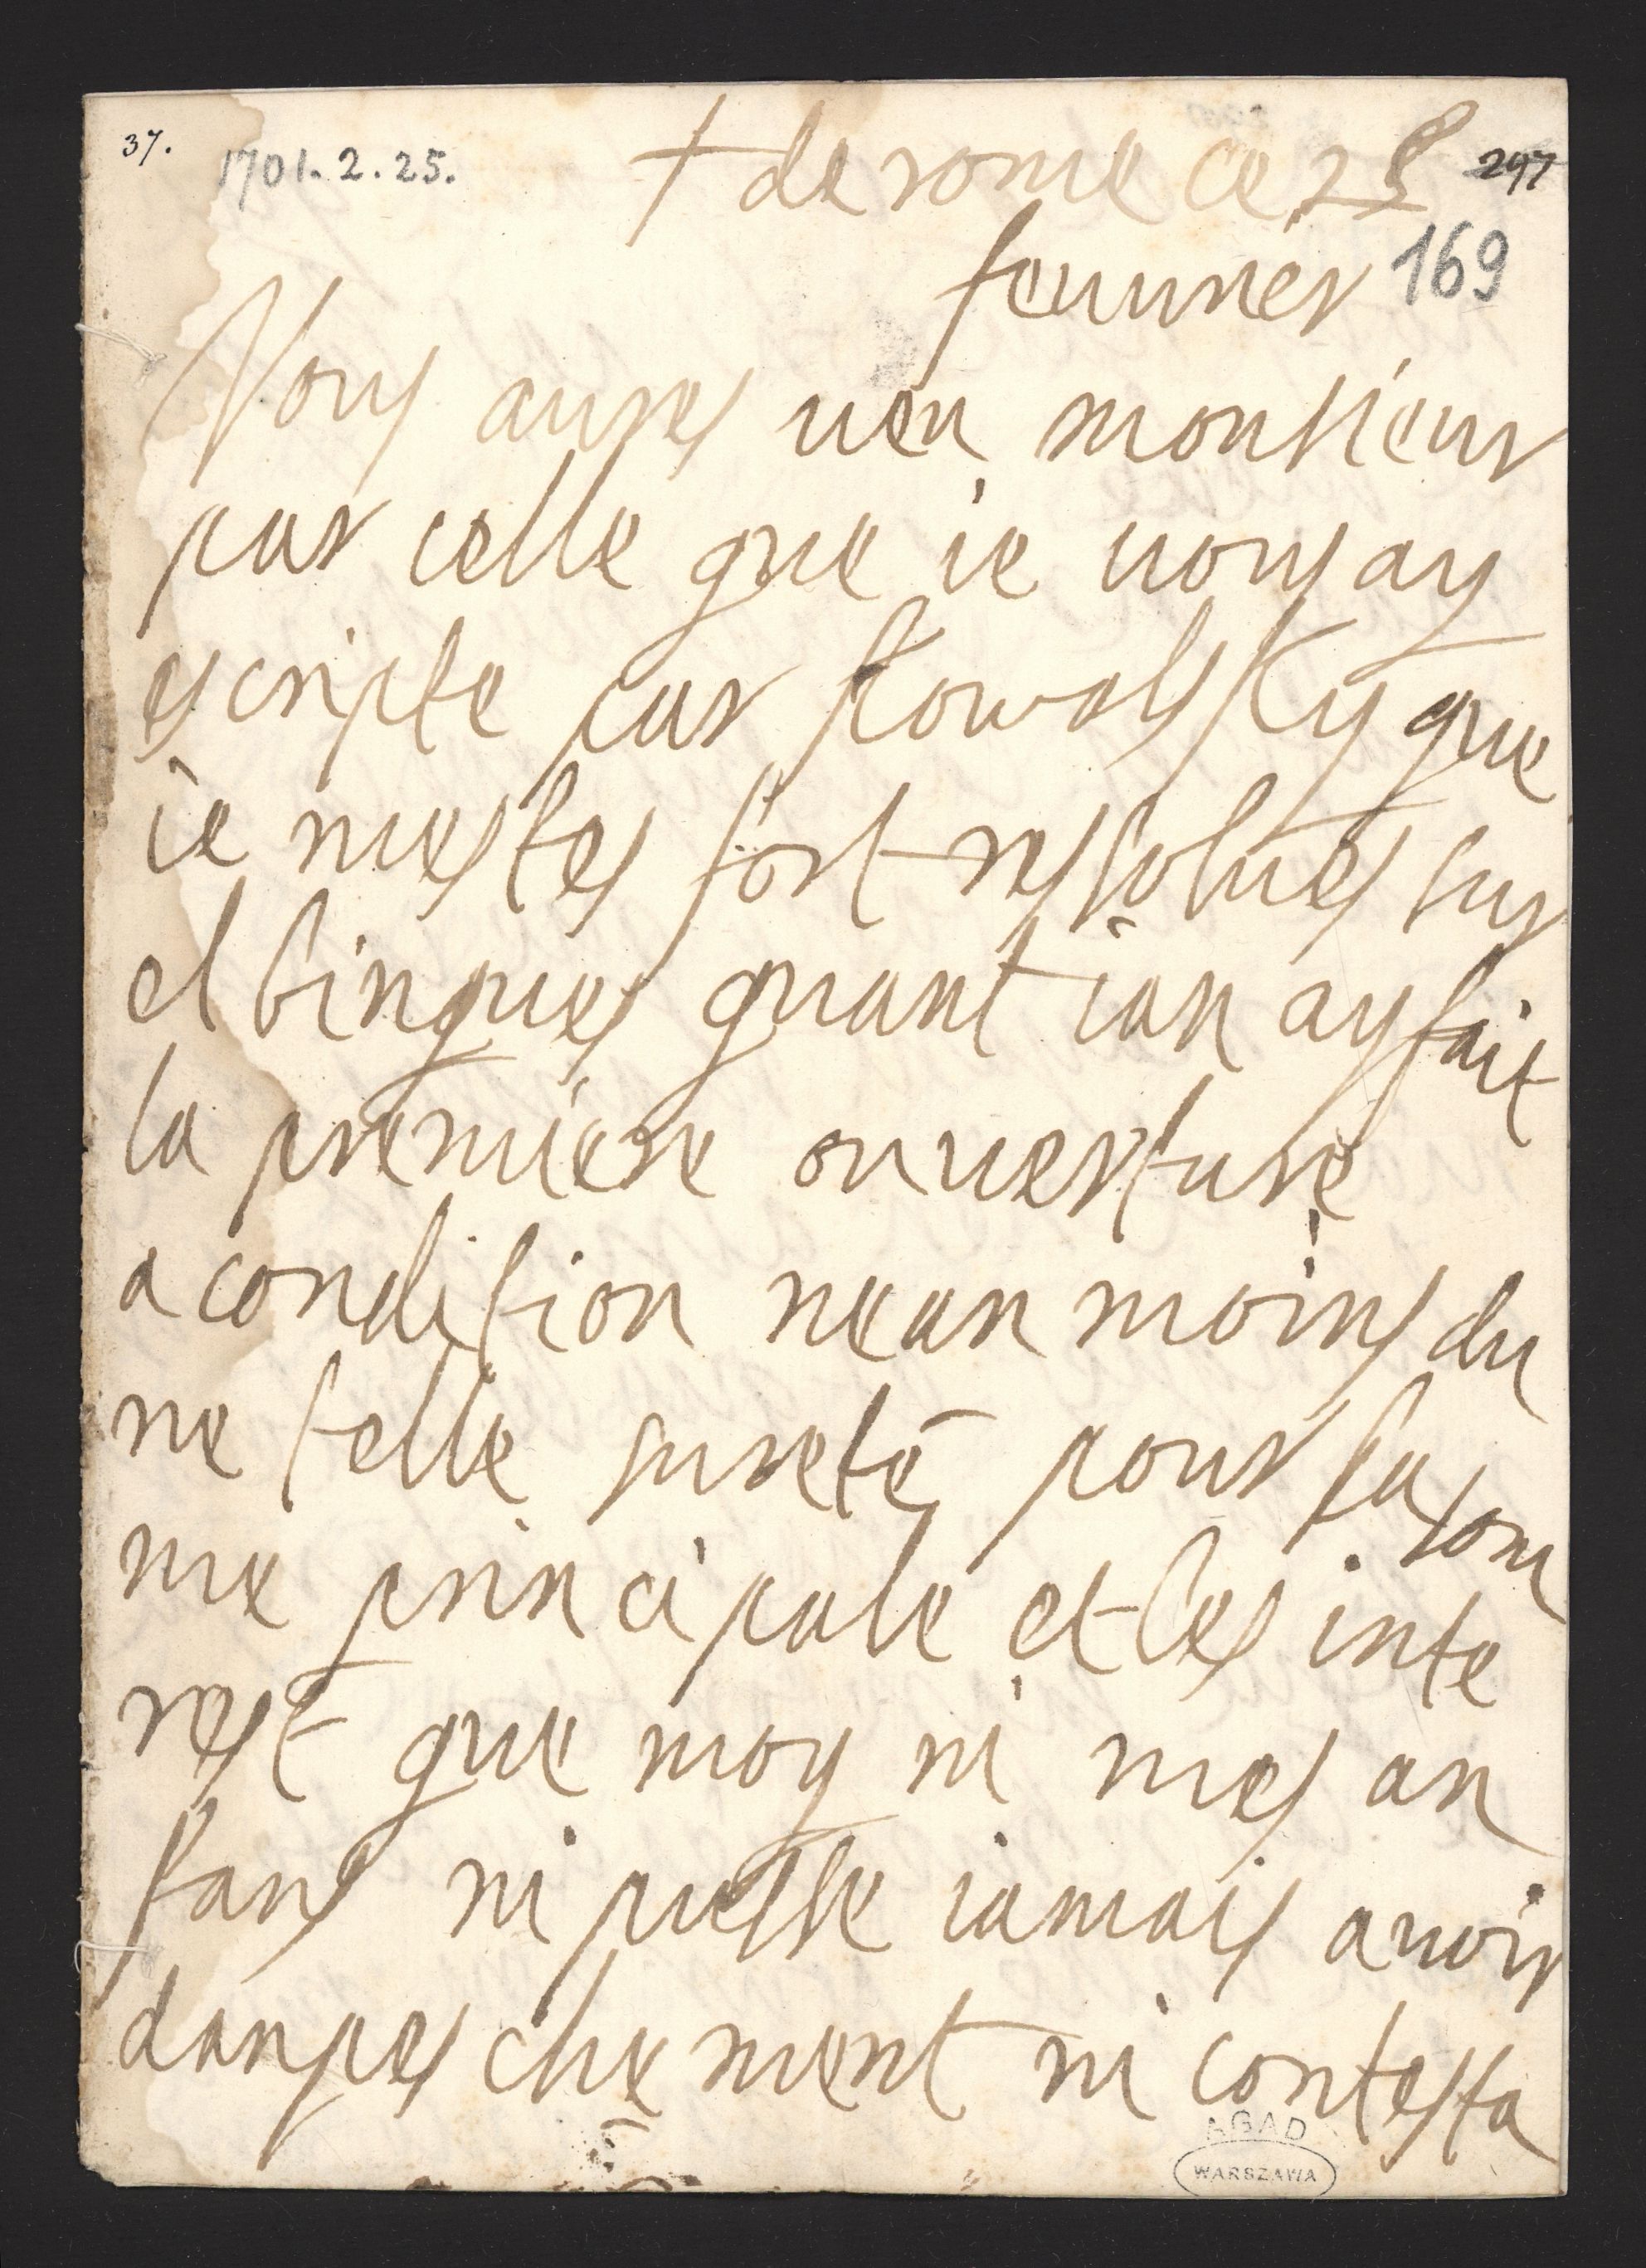 37.
1701.2.25.
+ de rome ce 25
297
feuurier 169
Vous aures ueu monsieur
par celle que ie uous ay
escripte par kowalsky que
ie mestes fort resolues sur
elbingues quant ian ay fait
la premiere ouuerture
a condition nean moins du
ne telle sureté pour la som
me principale et les inte
rest que moy ni mes an
fans ni puesse iamais auoir
danpeschement ni contesta
AGAD
WARSZAWA